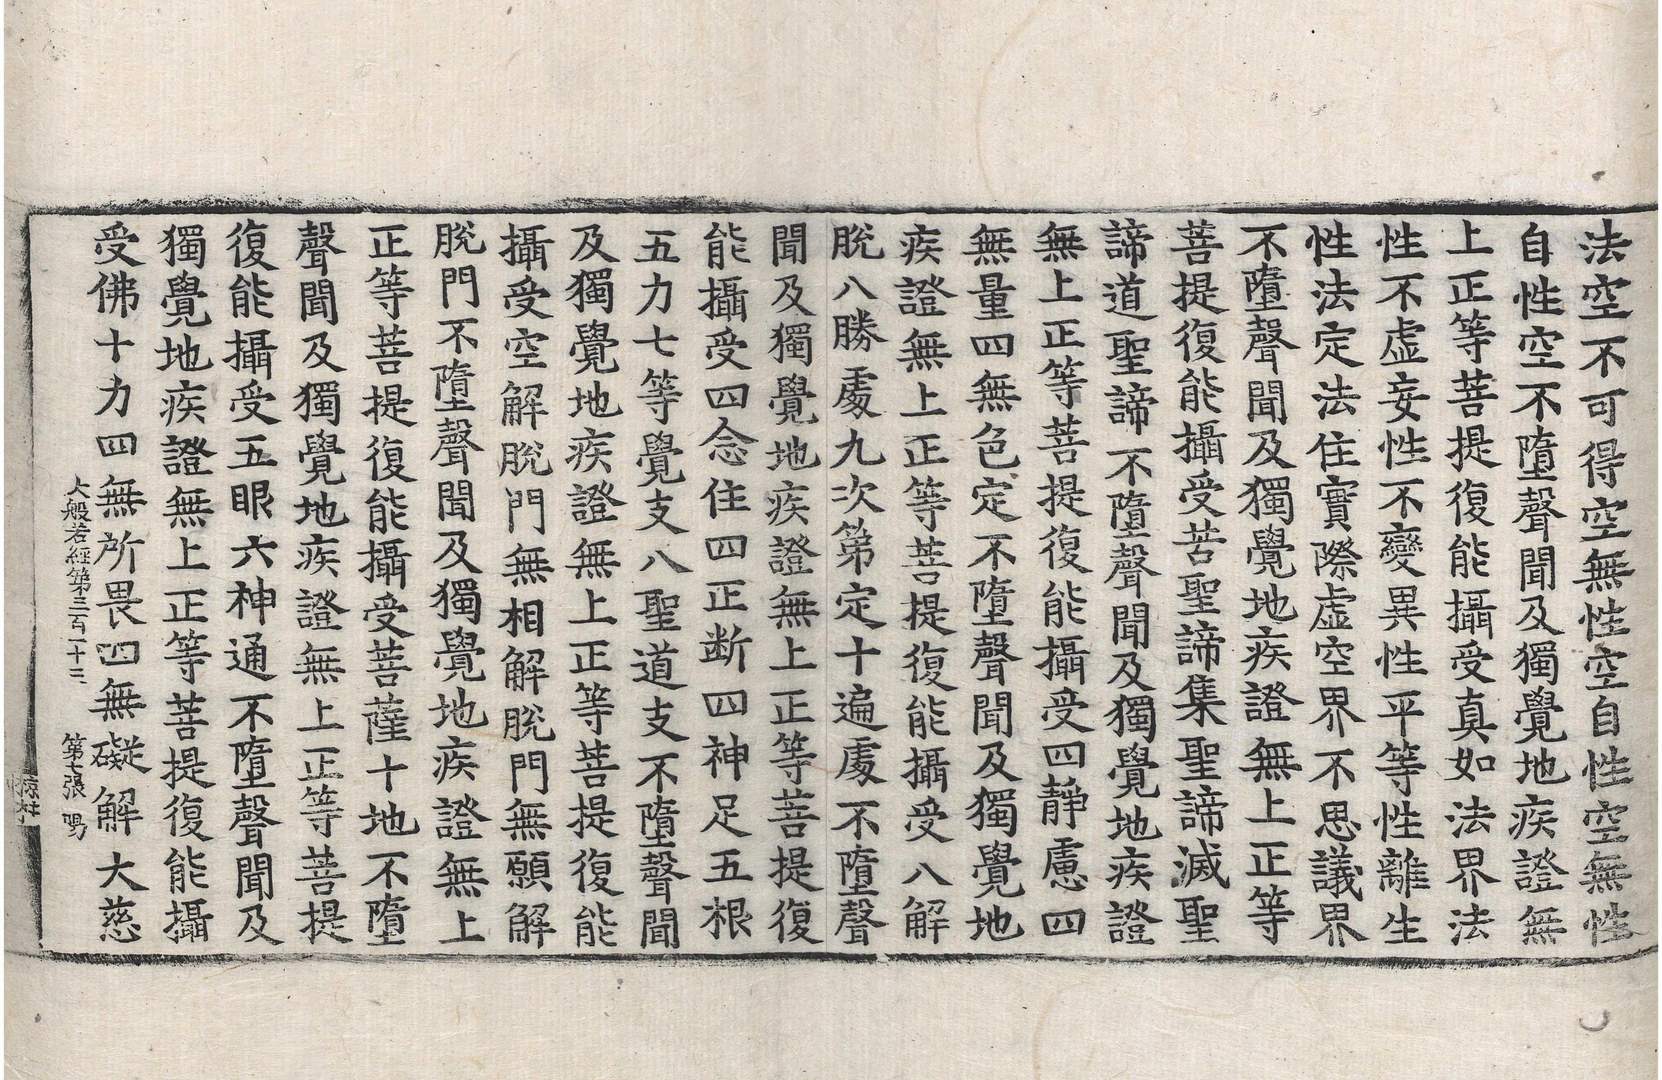 法空不可得空無性空自性空無性
自性空不墮聲聞及獨覺地疾證無
上正等菩提復能攝受真如法界法
性不虛妄性不變異性平等性離生
性法定法住實際虛空界不思議界
不墮聲聞及獨覺地疾證無上正等
菩提復能攝受苦聖諦集聖諦滅聖
諦道聖諦不墮聲聞及獨覺地疾證
無上正等菩提復能攝受四靜慮四
無量四無色定不墮聲聞及獨覺地
疾證無上正等菩提復能攝受八解
脫八勝處九次第定十遍處不墮聲
聞及獨覺地疾證無上正等菩提復
能攝受四念住四正斷四神足五根
五力七等覺支八聖道支不墮聲聞
及獨覺地疾證無上正等菩提復能
攝受空解脫門無相解脫門無願解
脫門不墮聲聞及獨覺地疾證無上
正等菩提復能攝受菩薩十地不墮
聲聞及獨覺地疾證無上正等菩提
復能攝受五眼六神通不墮聲聞及
獨覺地疾證無上正等菩提復能攝
受佛十力四無所畏四無礙解大慈
大般若經第三百一十三 第張